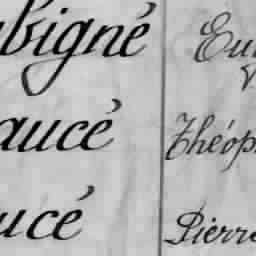 bigné Eu
aucé Théop
ucé Pierre